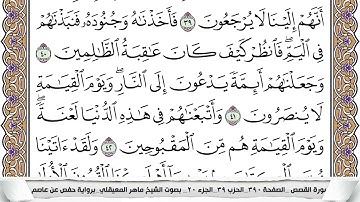 أَنَّهُمْ إِلَيْنَا لَا يُرْجَعُونَ ٣٩ فَأَخَذْنَٰهُ وَجُنُودَهُۥ فَنَبَذْنَٰهُمْ
فِى ٱلْيَمِّ ۖ فَٱنظُرْ كَيْفَ كَانَ عَٰقِبَةُ ٱلظَّٰلِمِينَ ٤٠
وَجَعَلْنَٰهُمْ أَئِمَّةً يَدْعُونَ إِلَى ٱلنَّارِ ۖ وَيَوْمَ ٱلْقِيَٰمَةِ
لَا يُنصَرُونَ ٤١ وَأَتْبَعْنَٰهُمْ فِى هَٰذِهِ ٱلدُّنْيَا لَعْنَةً ۖ
وَيَوْمَ ٱلْقِيَٰمَةِ هُم مِّنَ ٱلْمَقْبُوحِينَ ٤٢ وَلَقَدْ ءَاتَيْنَا
سورة القصص _ الصفحة ٣٩٠ _ الحزب ٣٩ _ الجزء ٢٠ _ بصوت الشيخ ماهر المعيقلي _ برواية حفص عن عاصم